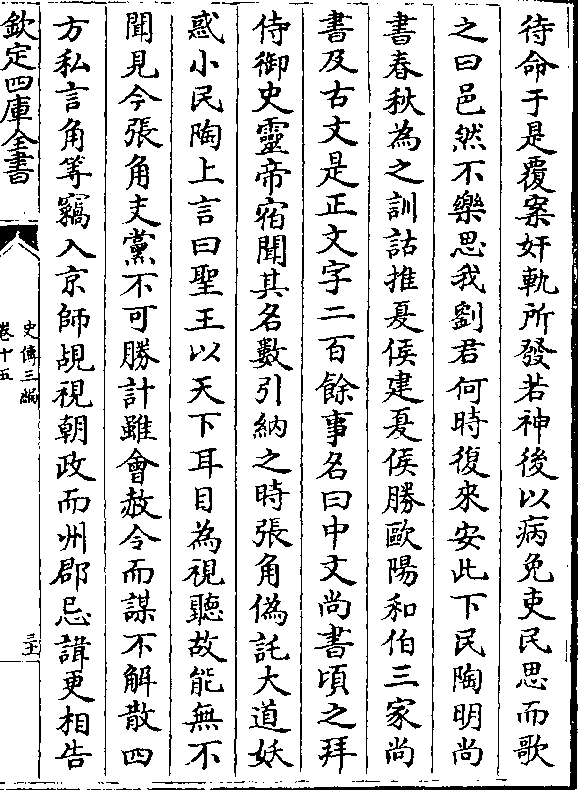 待命于是覆案奸軌所發若神後以病免吏民思而歌
之曰邑然不樂思我劉君何時復來安此下民陶明尚
書春秋為之訓詁推夏侯建夏侯勝歐陽和伯三家尚
書及古文是正文字二百餘事名曰中文尚書頃之拜
侍御史靈帝宿聞其名數引納之時張角偽託大道妖
惑小民陶上言曰聖王以天下耳目為視聽故能無不
聞見今張角支黨不可勝計雖會赦令而謀不解散四
方私言角等竊入京師覘視朝政而州郡忌諱更相告
欽定四庫全書
史傳三編
卷十五
三十